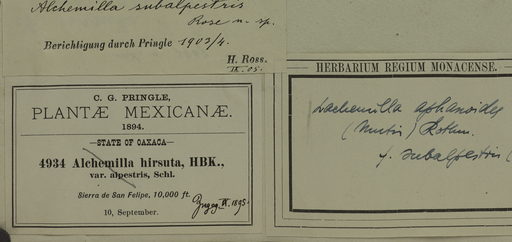 Alchemilla subalpestris
Rose n. sp.
Berichtigung durch Pringle 1903/4.
H. Ross.
IX. 05.
C. G. PRINGLE,
PLANTÆ MEXICANÆ.
1894.
—STATE OF OAXACA—
4934 Alchemilla hirsuta, HBK.,
var. alpestris, Schl.
Sierra de San Felipe, 10,000 ft.
10, September.
Zugeg. IX. 1895.
HERBARIUM REGIUM MONACENSE.
Lachemilla aphanoides
(Mutis) Rothm.
f. subalpestris (